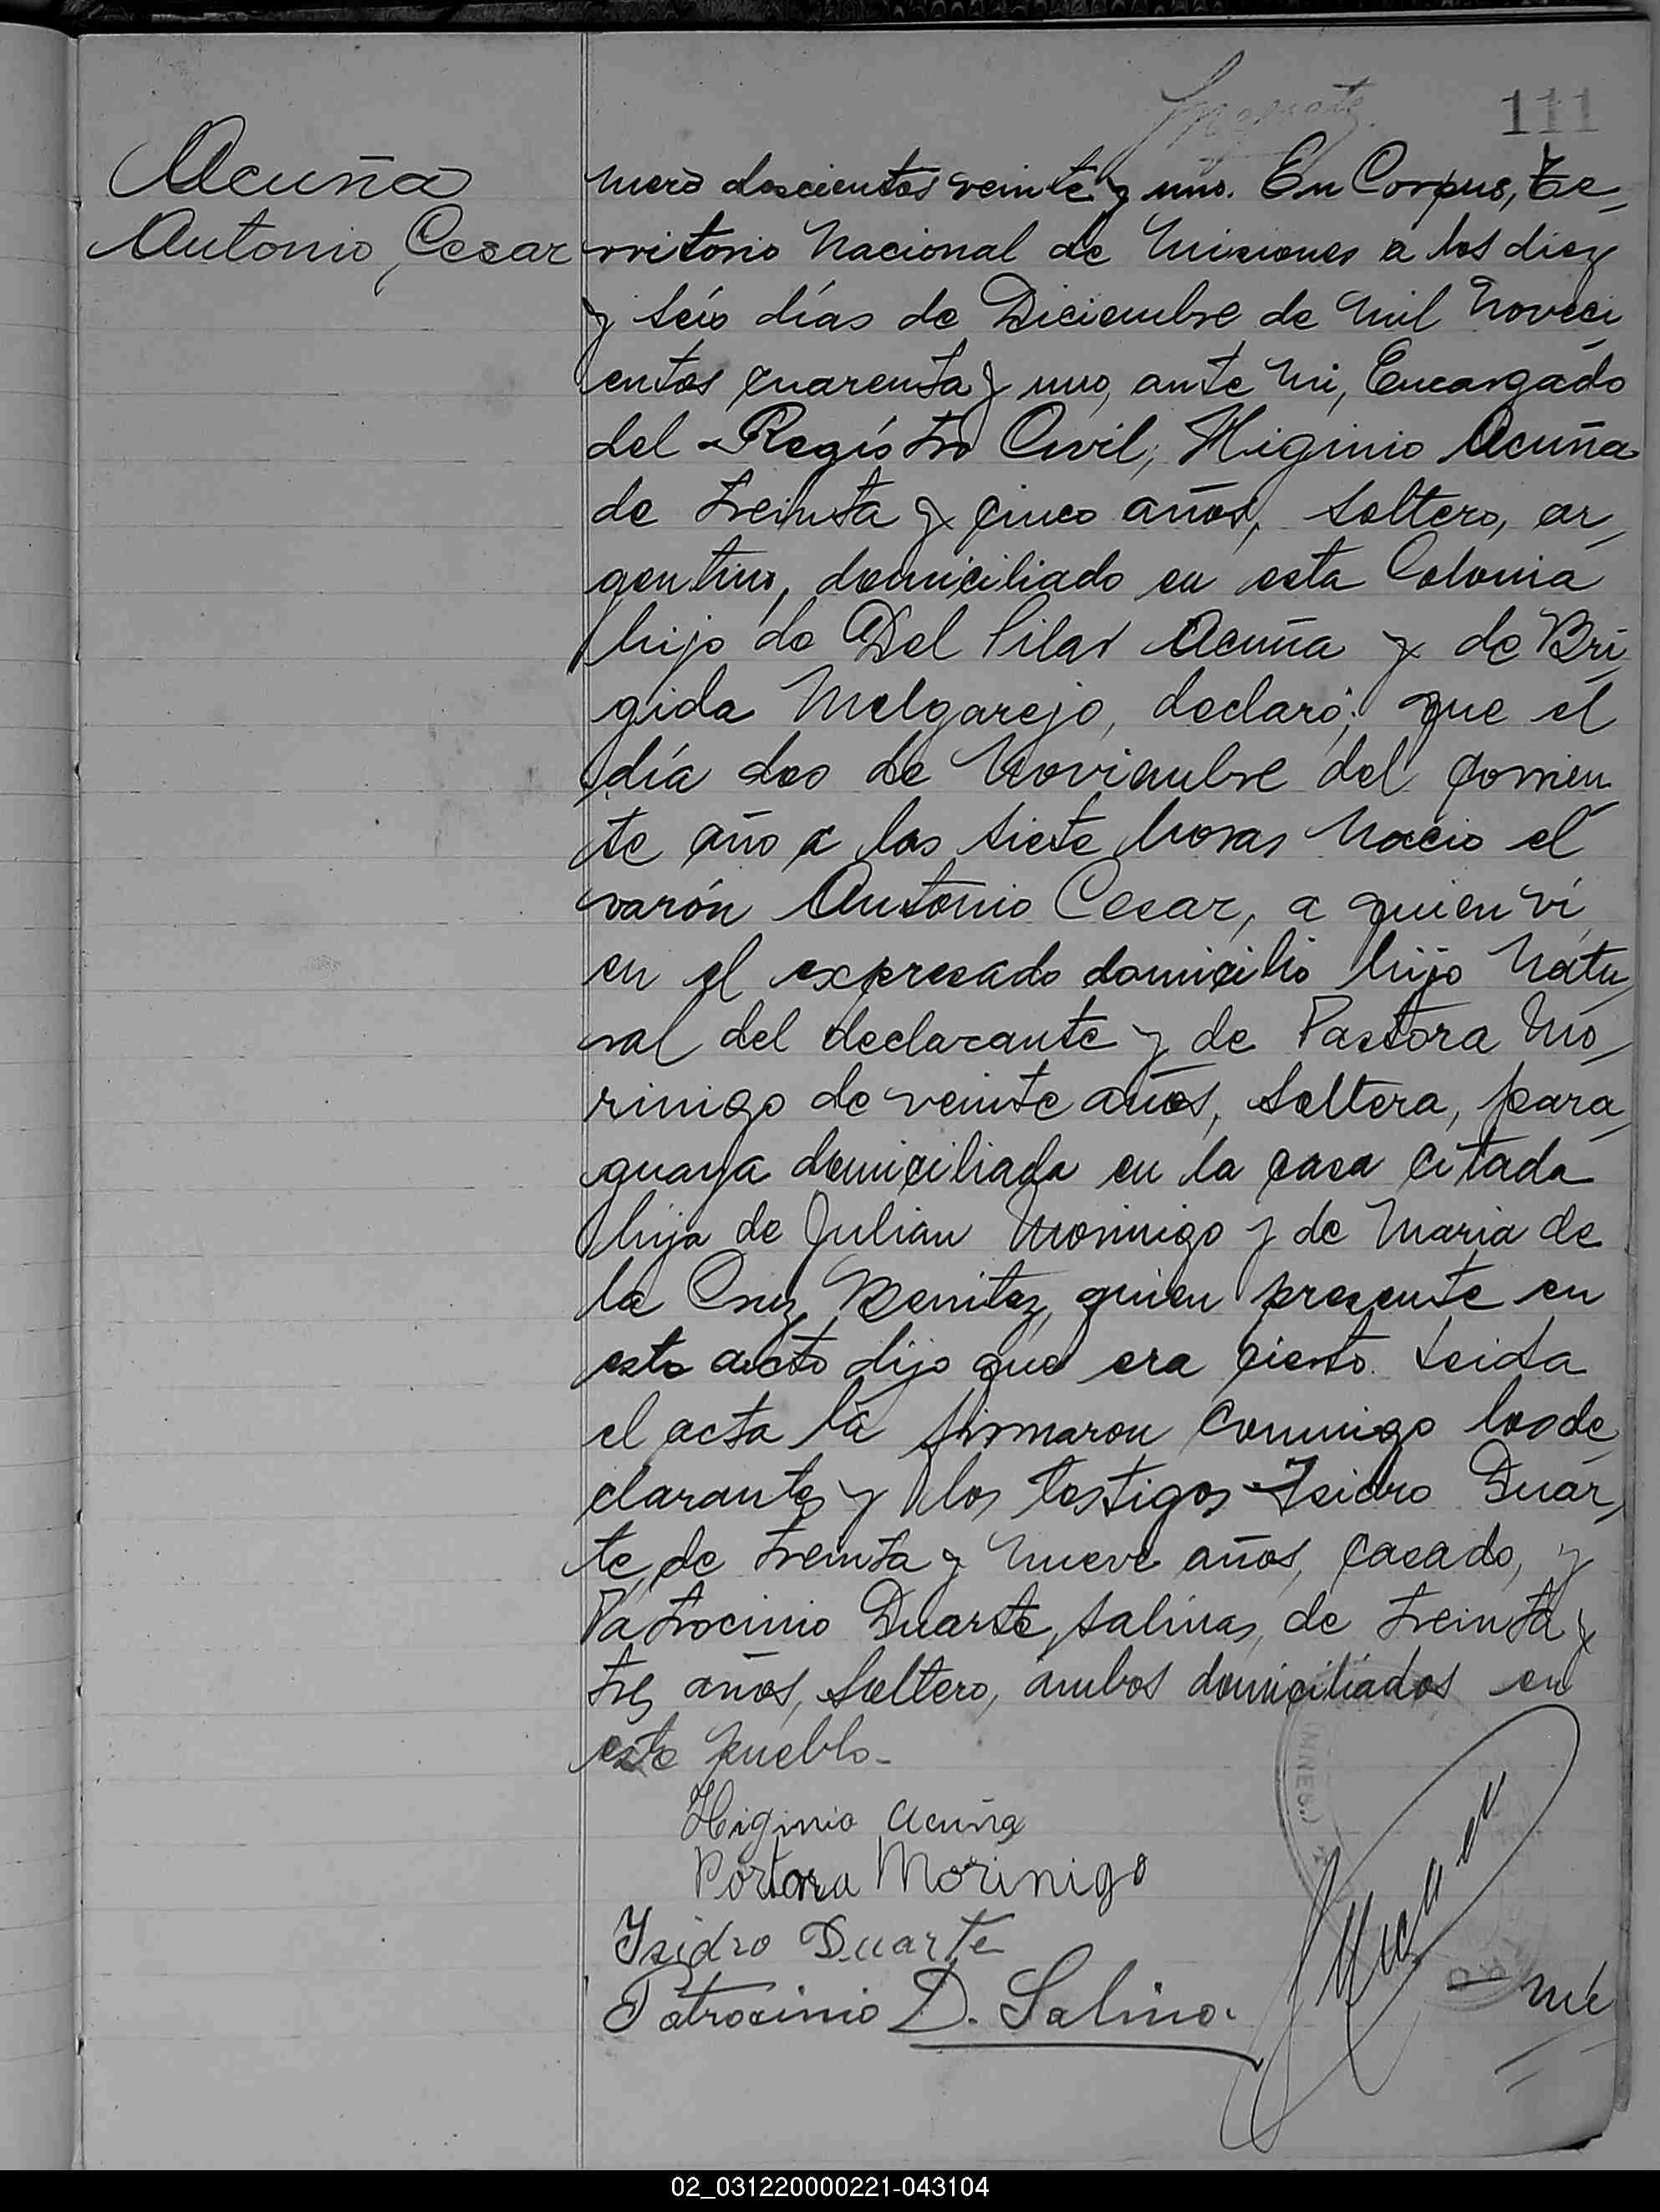 111
Acuña
Antonio, Cesar
mero doscientos veinte y uno. En Corpus, Te-
rritorio Nacional de Misiones a los diez
y seis días de Diciembre de mil noveci
entos cuarenta y uno, ante mi, Encargado
del Registro Civil; Higinio Acuña
de treinta y cinco años, soltero, ar-
gentino, domiciliado en esta Colonia
hijo de Del Pilar Acuña y de Bri
gida Melgarejo, declaró; que el
día dos de Noviembre del corrien
te año a las siete horas nació el
varón Antonio Cesar, a quien vi
en el expresado domicilio hijo natu
ral del declarante y de Pastora Mo-
rinigo de veinte años, soltera, para
guaya domiciliada en la casa citada
hija de Julian Morinigo y de Maria de
la Cruz Benitez, quien presente en
este acto dijo que era cierto. Leida
el acta la firmaron conmigo los de
clarantes y los testigos Isidro Duar
te, de treinta y nueve años, casado, y
Patrocinio Duarte Salinas, de treinta y
tres años, soltero, ambos domiciliados en
este pueblo-
Higinio Acuña
Portora Morinigo
Isidro Duarte
Patrocinio D. Salina.
(MNES.)
02_031220000221-043104